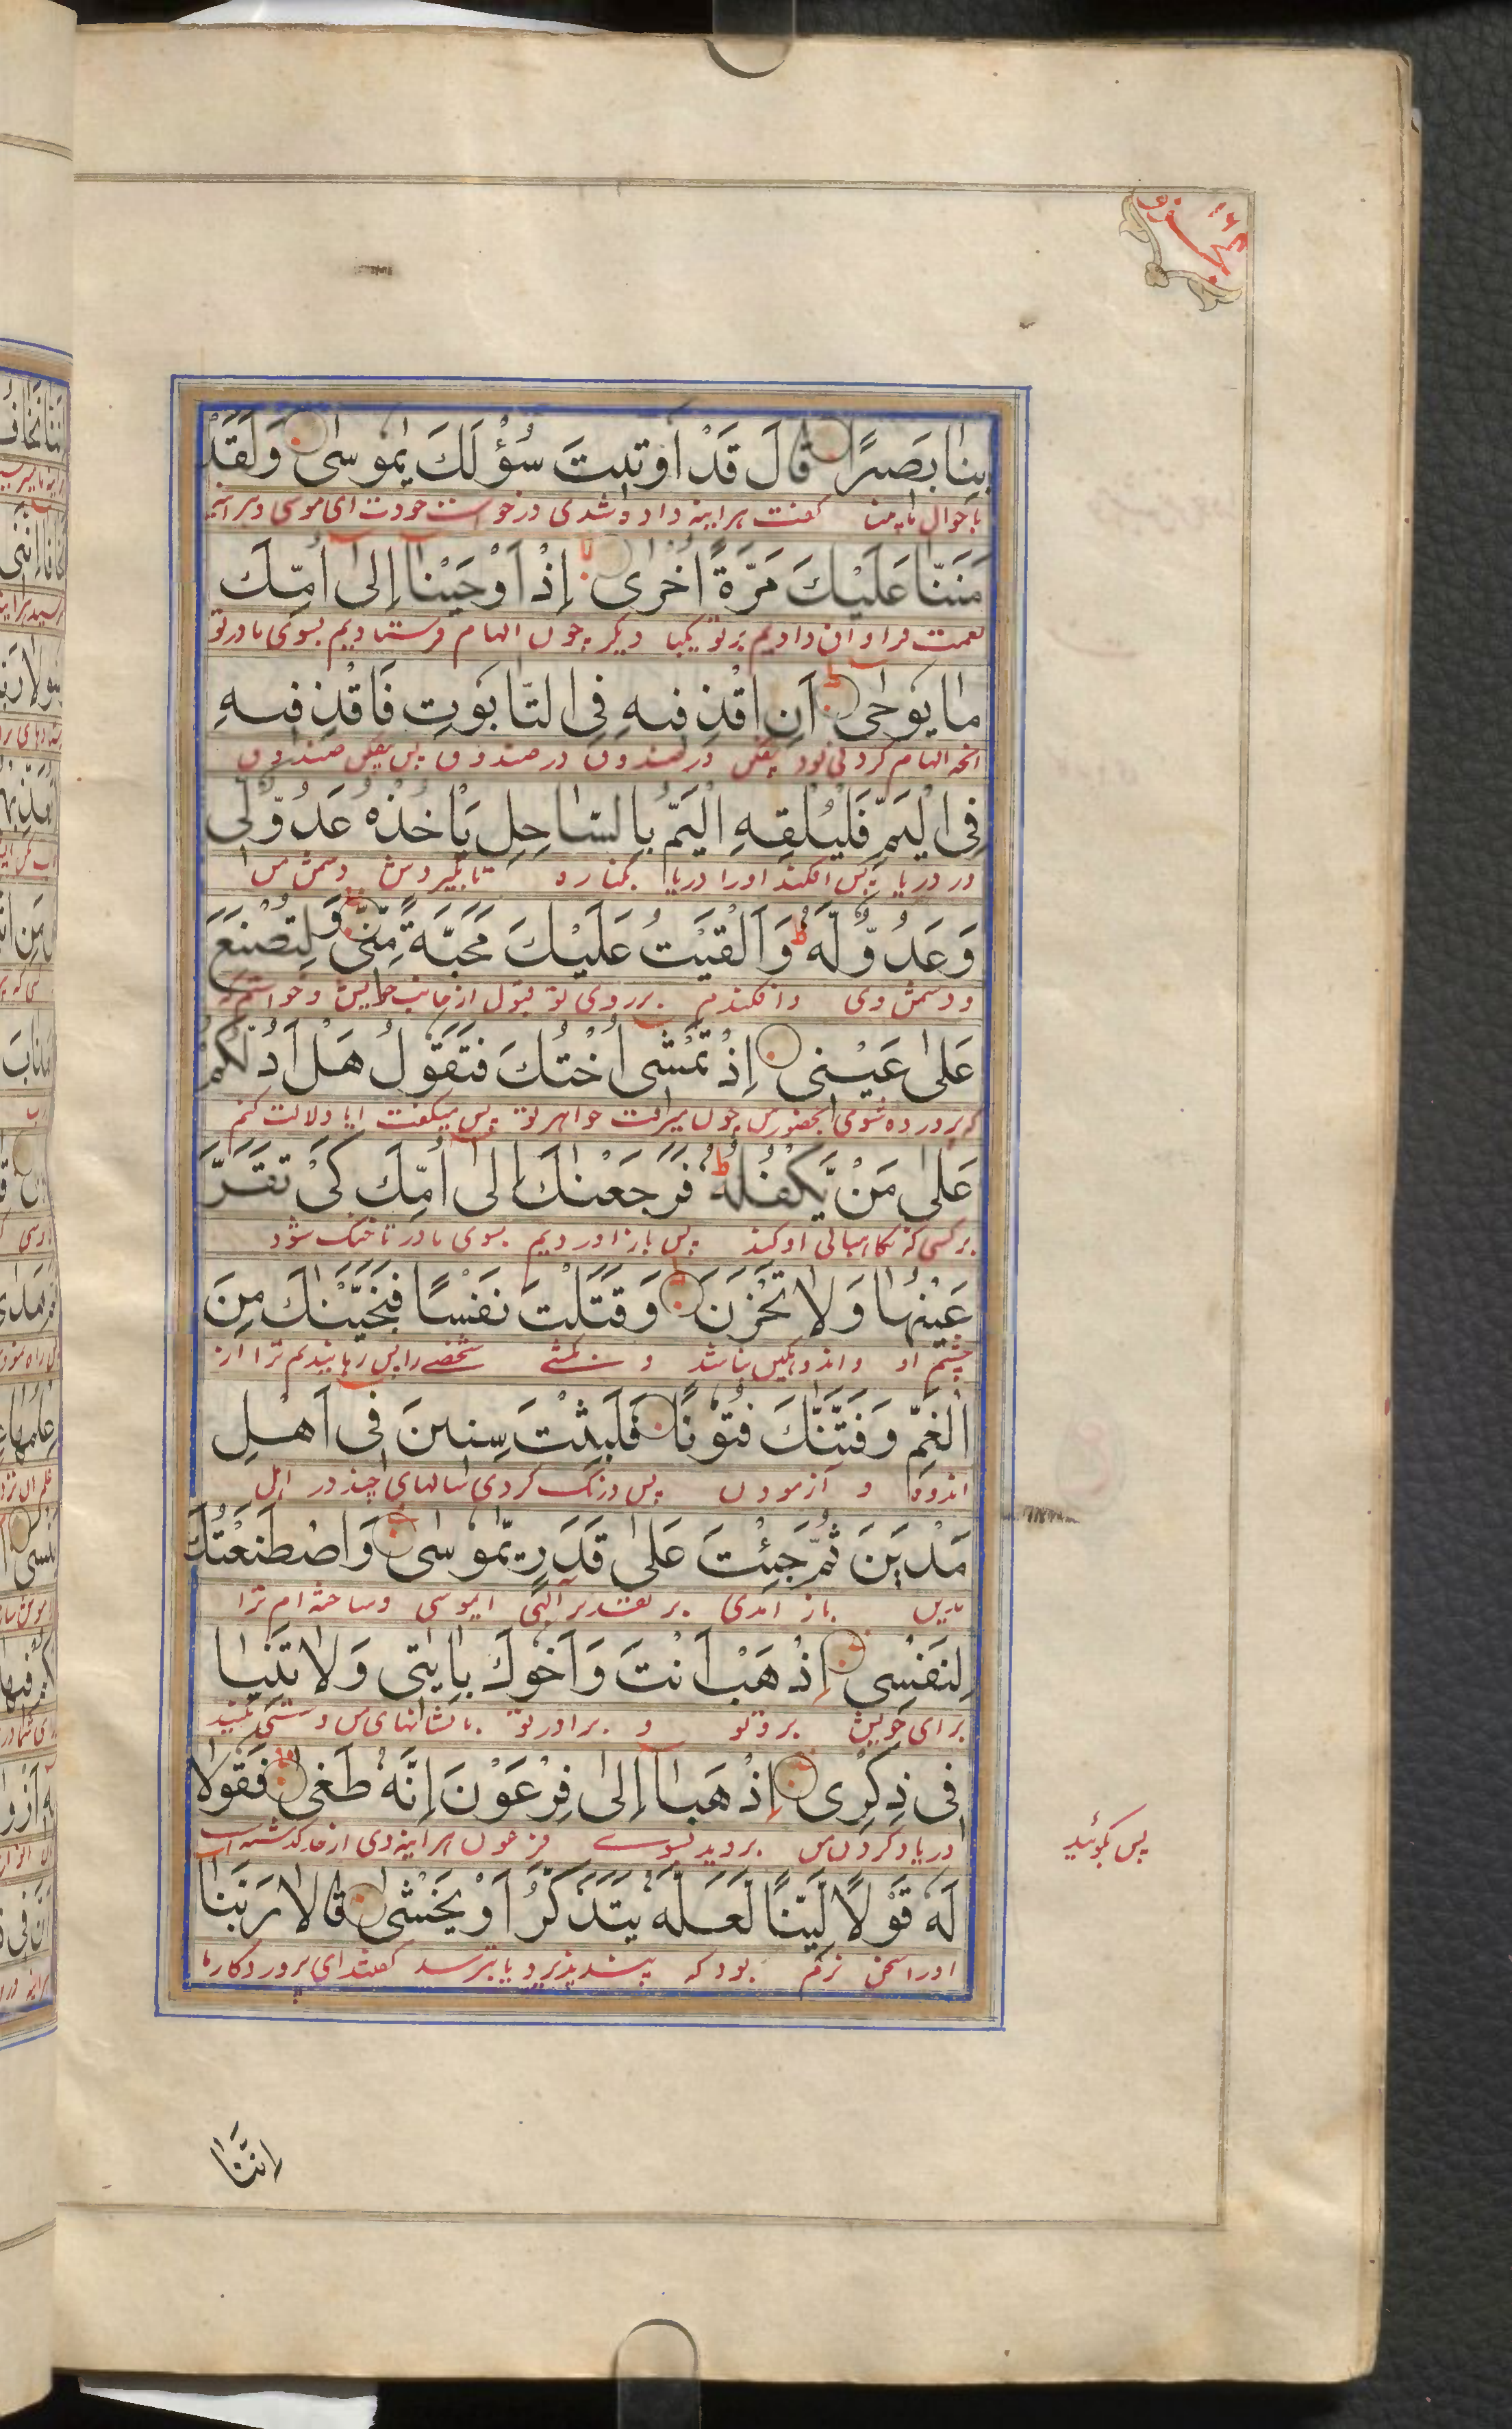 بِنَا بَصِيرًا قَالَ قَدْ أُوتِيتَ سُؤْلَكَ يٰمُوسٰى وَلَقَدْ
گفت هراینه داده شدی درخواست خودت ای موسی وهراینه
مَنَنَّا عَلَيْكَ مَرَّةً أُخْرٰى إِذْ أَوْحَيْنَا إِلٰى أُمِّكَ
نعمت فراوان دادیم برتو یکبار دیگر چون الهام فرستادیم بسوی مادرتو
مَا يُوحٰى أَنِ اقْذِفِيهِ فِى التَّابُوتِ فَاقْذِفِيهِ
انچه الهام کردنی بود در صندوق
فِى الْيَمِّ فَلْيُلْقِهِ الْيَمُّ بِالسَّاحِلِ يَأْخُذْهُ عَدُوٌّ لِّى
در دریا پس افکند اورا دریا بکناره تا بگیردش دشمن من
وَعَدُوٌّ لَّهٗ ط وَأَلْقَيْتُ عَلَيْكَ مَحَبَّةً مِّنِّى وَلِتُصْنَعَ
ودشمن وی وافکندم برروی تو قبول از جانب خویش وخواستم
عَلٰى عَيْنِى إِذْ تَمْشِى أُخْتُكَ فَتَقُولُ هَلْ أَدُلُّكُمْ
که پرورده شوی بحضور من چون میرفت خواهر تو پس میگفت ایا دلالت کنم
عَلٰى مَنْ يَّكْفُلُهٗ ط فَرَجَعْنٰكَ إِلٰى أُمِّكَ كَىْ تَقَرَّ
برکسی که نگاهبانی او کند پس باز اوردیم بسوی مادر تا خنک شود
عَيْنُهَا وَلَا تَحْزَنَ وَقَتَلْتَ نَفْسًا فَنَجَّيْنٰكَ مِنَ
چشم او واندوهگین نباشد و بکشتی شخصے را پس رهانیدیم ترا از
الْغَمِّ وَفَتَنّٰكَ فُتُونًا فَلَبِثْتَ سِنِينَ فِى أَهْلِ
اندوه و آزمودن پس درنگ کردی سالهای چند در اهل
مَدْيَنَ ثُمَّ جِئْتَ عَلٰى قَدَرٍ يّٰمُوسٰى وَاصْطَنَعْتُكَ
مدین باز آمدی بر تقدیر آلهی ایموسی وساخته ام ترا
لِنَفْسِى إِذْهَبْ أَنْتَ وَأَخُوكَ بِاٰيٰتِى وَلَا تَنِيَا
برای خویش برو تو و برادر تو با نشانهای من وسستی مکنید
فِى ذِكْرِى إِذْهَبَا إِلٰى فِرْعَوْنَ إِنَّهٗ طَغٰى فَقُولَا
در یاد کردن من بروید بسوے فرعون هراینه وی از حد گذشته است
پس بگوئید
لَهٗ قَوْلًا لَّيِّنًا لَّعَلَّهٗ يَتَذَكَّرُ أَوْ يَخْشٰى قَالَا رَبَّنَا
اورا سخن نرم بود که پند پذیرد یا بترسد گفتند ای پروردگار ما
إِنَّنَا